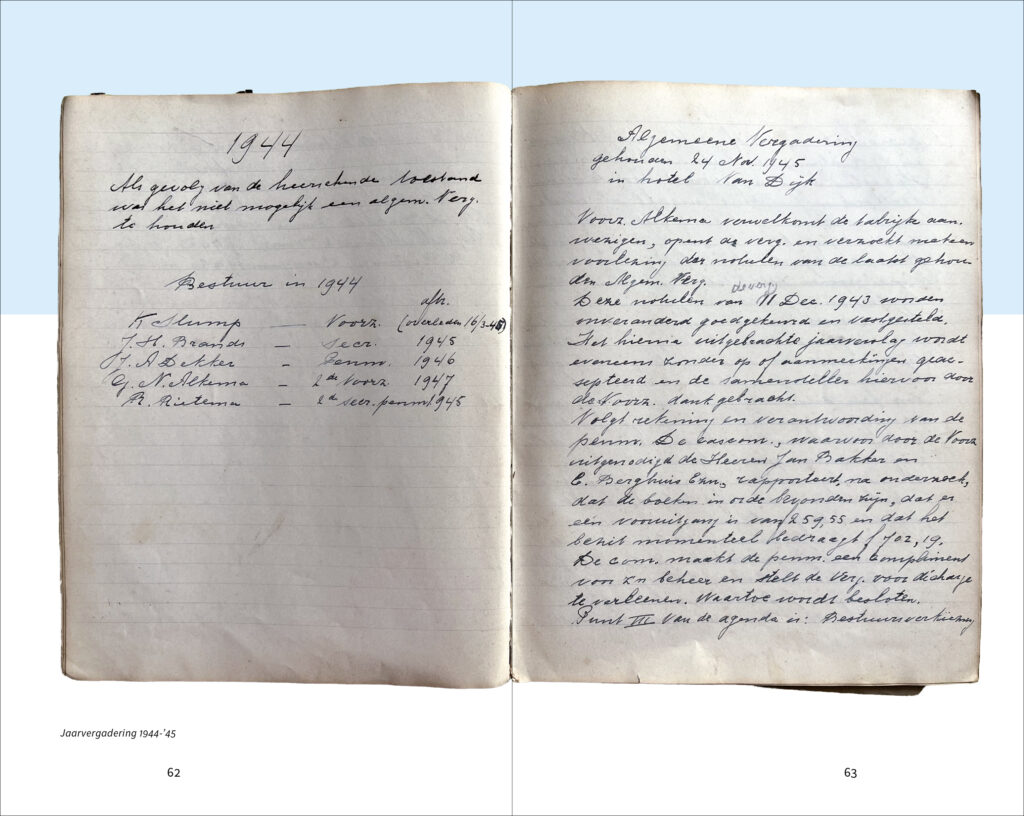 1944
Als gevolg van de heerschende toestand
was het niet mogelijk een algem. Verg.
te houden
Bestuur in 1944
aftr.
K Slump — Voorz. (overleden 16/3-45)
J. H. Brands — Secr. 1945
J. A Dekker — Penm. 1946
G. N. Alkema — 2de Voorz 1947
R. Rietema — 2de secr. penm. 1945
Algemeene Vergadering
gehouden 24 Nov. 1945
in hotel Van Dijk
Voorz. Alkema verwelkomt de talrijke aan-
wezigen, opent de verg. en verzoekt meteen
voorlezing der notulen van de laatst gehou-
den Algem. Verg.
de verg
Deze notulen van 11 Dec. 1943 worden
onveranderd goedgekeurd en vastgesteld.
Het hierna uitgebrachte jaarverslag wordt
eveneens zonder op of aanmerkingen geac-
septeerd en de samensteller hiervoor door
de Voorz. dank gebracht.
Volgt rekening en verantwoording van de
penm. De cascom., waarvoor door de Voorz
uitgenodigd de Heeren Jan Bakker en
E. Berghuis Ezn, rapporteert, na onderzoek,
dat de boeken in orde bevonden zijn, dat er
een vooruitgang is van 259,55 en dat het
bezit momenteel bedraagt f 702,19.
De com. maakt de penm. een compliment
voor z'n beheer en stelt de Verg. voor dicharge
te verleenen. Waartoe wordt besloten.
Punt III van de agenda is: Bestuursverkiezing
Jaarvergadering 1944-'45
62
63